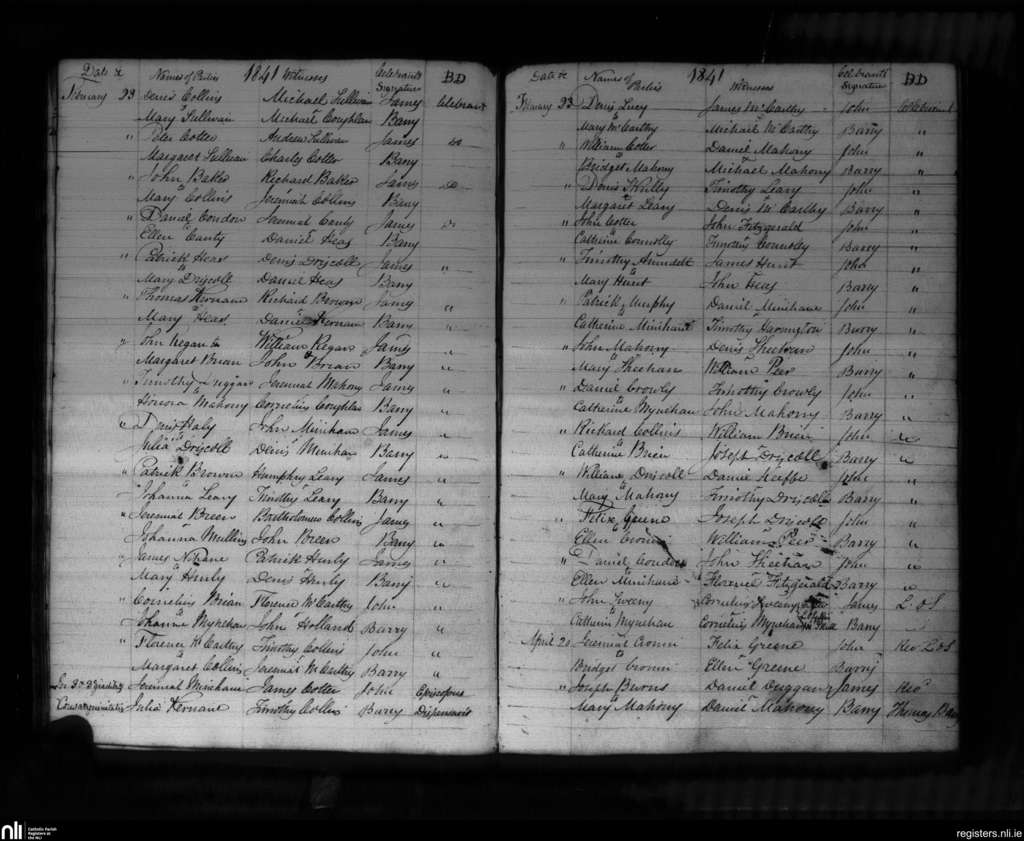 Date &c Names of Parties 1841 Witnesses Celebrants Signature BD
February 23 Denis Collins Michael Sullivan James Celebrant
Mary Sullivan Michael Coughlan Barry
" Peter Cotter Andrew Sullivan James do
Margaret Sullivan Charles Cotter Barry
" John Baker Richard Baker James do
Mary Collins Jeremiah Collins Barry
" Daniel Condon Jeremiah Canty James do
Ellen Canty Daniel Heas Barry
" Patrick Heas Denis Driscoll James "
Mary Driscoll Daniel Heas Barry
" Thomas Kernan Richard Brown James "
Mary Heas Daniel Kernan Barry "
" John Regan to William Regan James "
Margaret Brian John Brian Barry "
" Timothy Jeremiah Mahony James "
Honora Mahony Cornelius Coughlan Barry "
" Daly John Minihane James "
Julia Driscoll Denis Barry "
" Patrick Brown Humphry Leary James "
Johanna Leary Timothy Leary Barry "
" Jeremiah Breen Bartholomew Collins James "
Johanna Mullins John Breen Barry "
" James Patrick Hurly James "
Mary Hurly Denis Hurly Barry "
" Cornelius Brian Florence McCarthy John "
Johanna Mynehan John Holland Barry "
" Florence McCarthy Timothy Collins John "
Margaret Collins Jeremiah McCarthy Barry "
In 3o & 3o gradibus Jeremiah Minihane James Cotter John Episcopus
Consanguinitatis Julia Kernan Timothy Collins Barry Dispensavit
Date &c Names of Parties 1841 Witnesses Celebrants Signature BD
February 23 Denis Lucy James McCarthy John Celebrant
Mary McCarthy Michael McCarthy Barry "
" William Cotter Daniel Mahony John "
Bridget Mahony Michael Mahony Barry "
" Denis Skully Timothy Leary John "
Margaret Leary Denis McCarthy Barry "
" John Cotter John Fitzgerald John "
Catherine Connolly Timothy Connolly Barry "
" Timothy Arundell James Hurst John "
Mary Hurst John Heas Barry "
" Patrick Murphy Daniel Minihane John "
Catherine Minihane Timothy Harrington Barry "
" John Mahony Denis Sheehan John "
Mary Sheehan William Peer Barry "
" Daniel Crowly Timothy Crowly John "
Catherine Mynehan John Mahony Barry "
" Richard Collins William Brien John "
Catherine Brien Joseph Driscoll Barry "
" William Driscoll Daniel Keeffe John "
Mary Mahony Timothy Driscoll Barry "
" Felix Greene Joseph Driscoll John "
Ellen Cronin William Peer Barry "
" Daniel Condon John Sheehan John "
Ellen Minihane Florence Fitzgerald Barry "
" John Sweeny Cornelius Sweeny James L. & S
Catherine Mynehan Cornelius Mynehan Barry
April 20 Jeremiah Cronin Felix Greene John Rev L & S
Bridget Cronin Ellen Greene Barry
" Joseph Burns Daniel Duggan James Revd
Mary Mahony Daniel Mahony Barry Thomas
nli Catholic Parish Registers at the NLI
registers.nli.ie